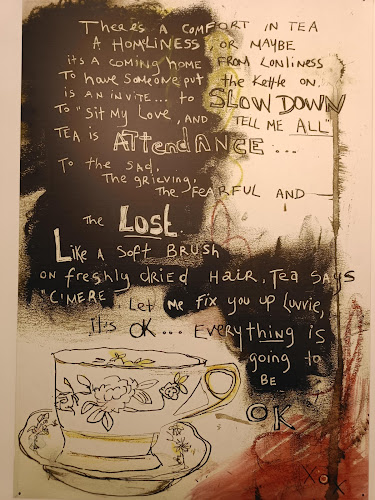 There's a comfort in tea
A Homliness, or maybe
it's a coming home from lonliness
To have someone put the kettle on.
is an invite... to SLOW DOWN
To "sit my love, and TELL ME ALL"
TEA is ATTENDANCE...
To the sad,
The grieving,
The FEARFUL AND
the LOST.
Like a soft Brush
on freshly dried Hair, Tea says
"C'MERE Let me fix you up luvvie,
it's OK... Everything is
going to
BE
OK
XOX